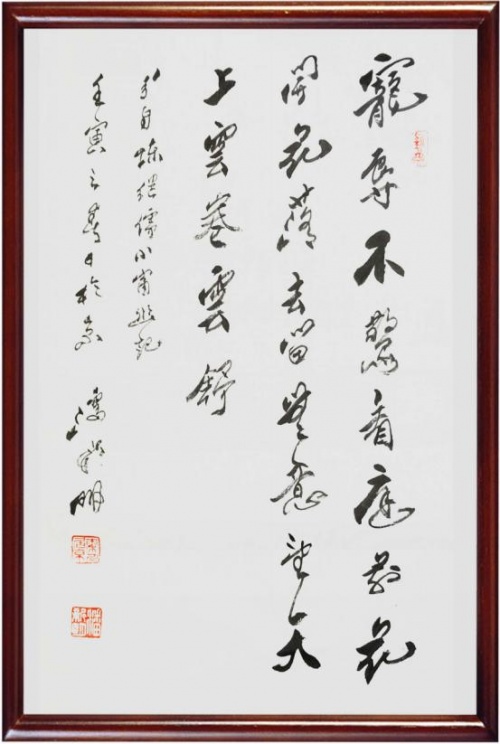 寵辱不驚看庭前花
開花落去留無意望天
上雲卷雲舒
录自陳継儒小窗幽記
壬寅之春日於京